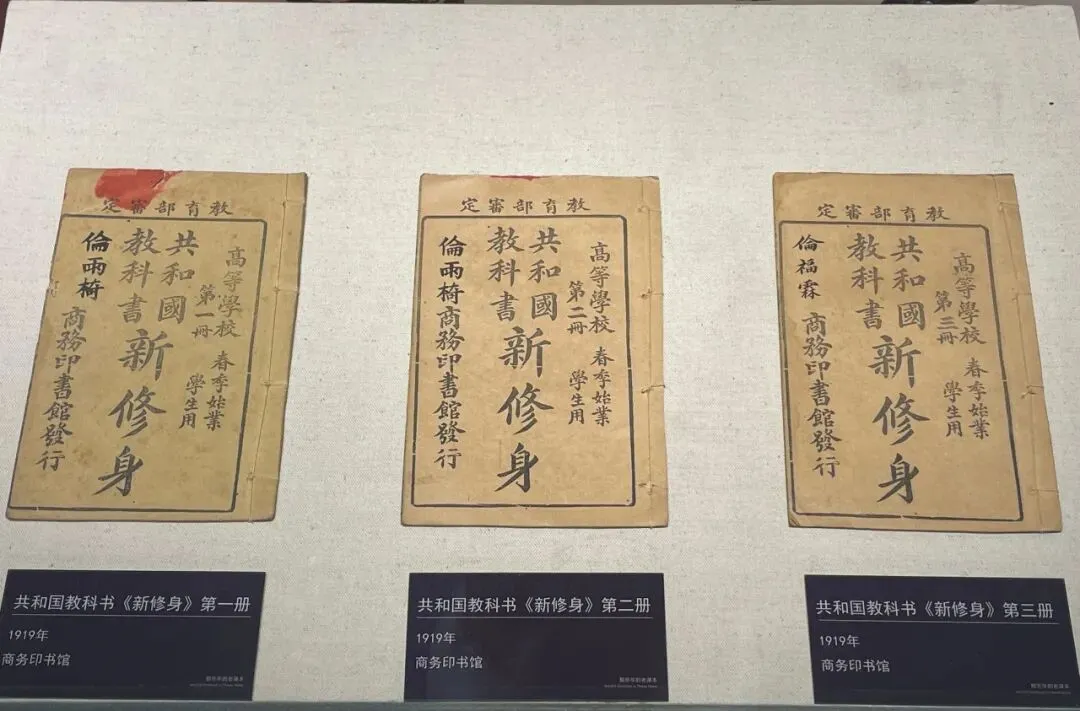 教育部審定
高等學校 春季始業
第一冊 學生用
共和國
教科書
新修身
倫雨椅
商務印書館發行
教育部審定
高等學校 春季始業
第二冊 學生用
共和國
教科書
新修身
倫雨椅
商務印書館發行
教育部審定
高等學校 春季始業
第三冊 學生用
共和國
教科書
新修身
倫福霖
商務印書館發行
共和国教科书《新修身》第一册
1919年
商务印书馆
共和国教科书《新修身》第二册
1919年
商务印书馆
共和国教科书《新修身》第三册
1919年
商务印书馆